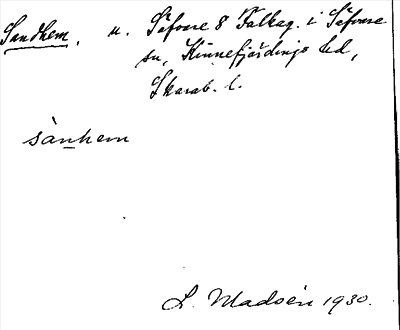 Sandhem, u. Säfvare 8 Falkäg. i Säfvare
sn, Kinnefjärdings hd,
Skarab. l.
sànhem
L. Madsén 1930.